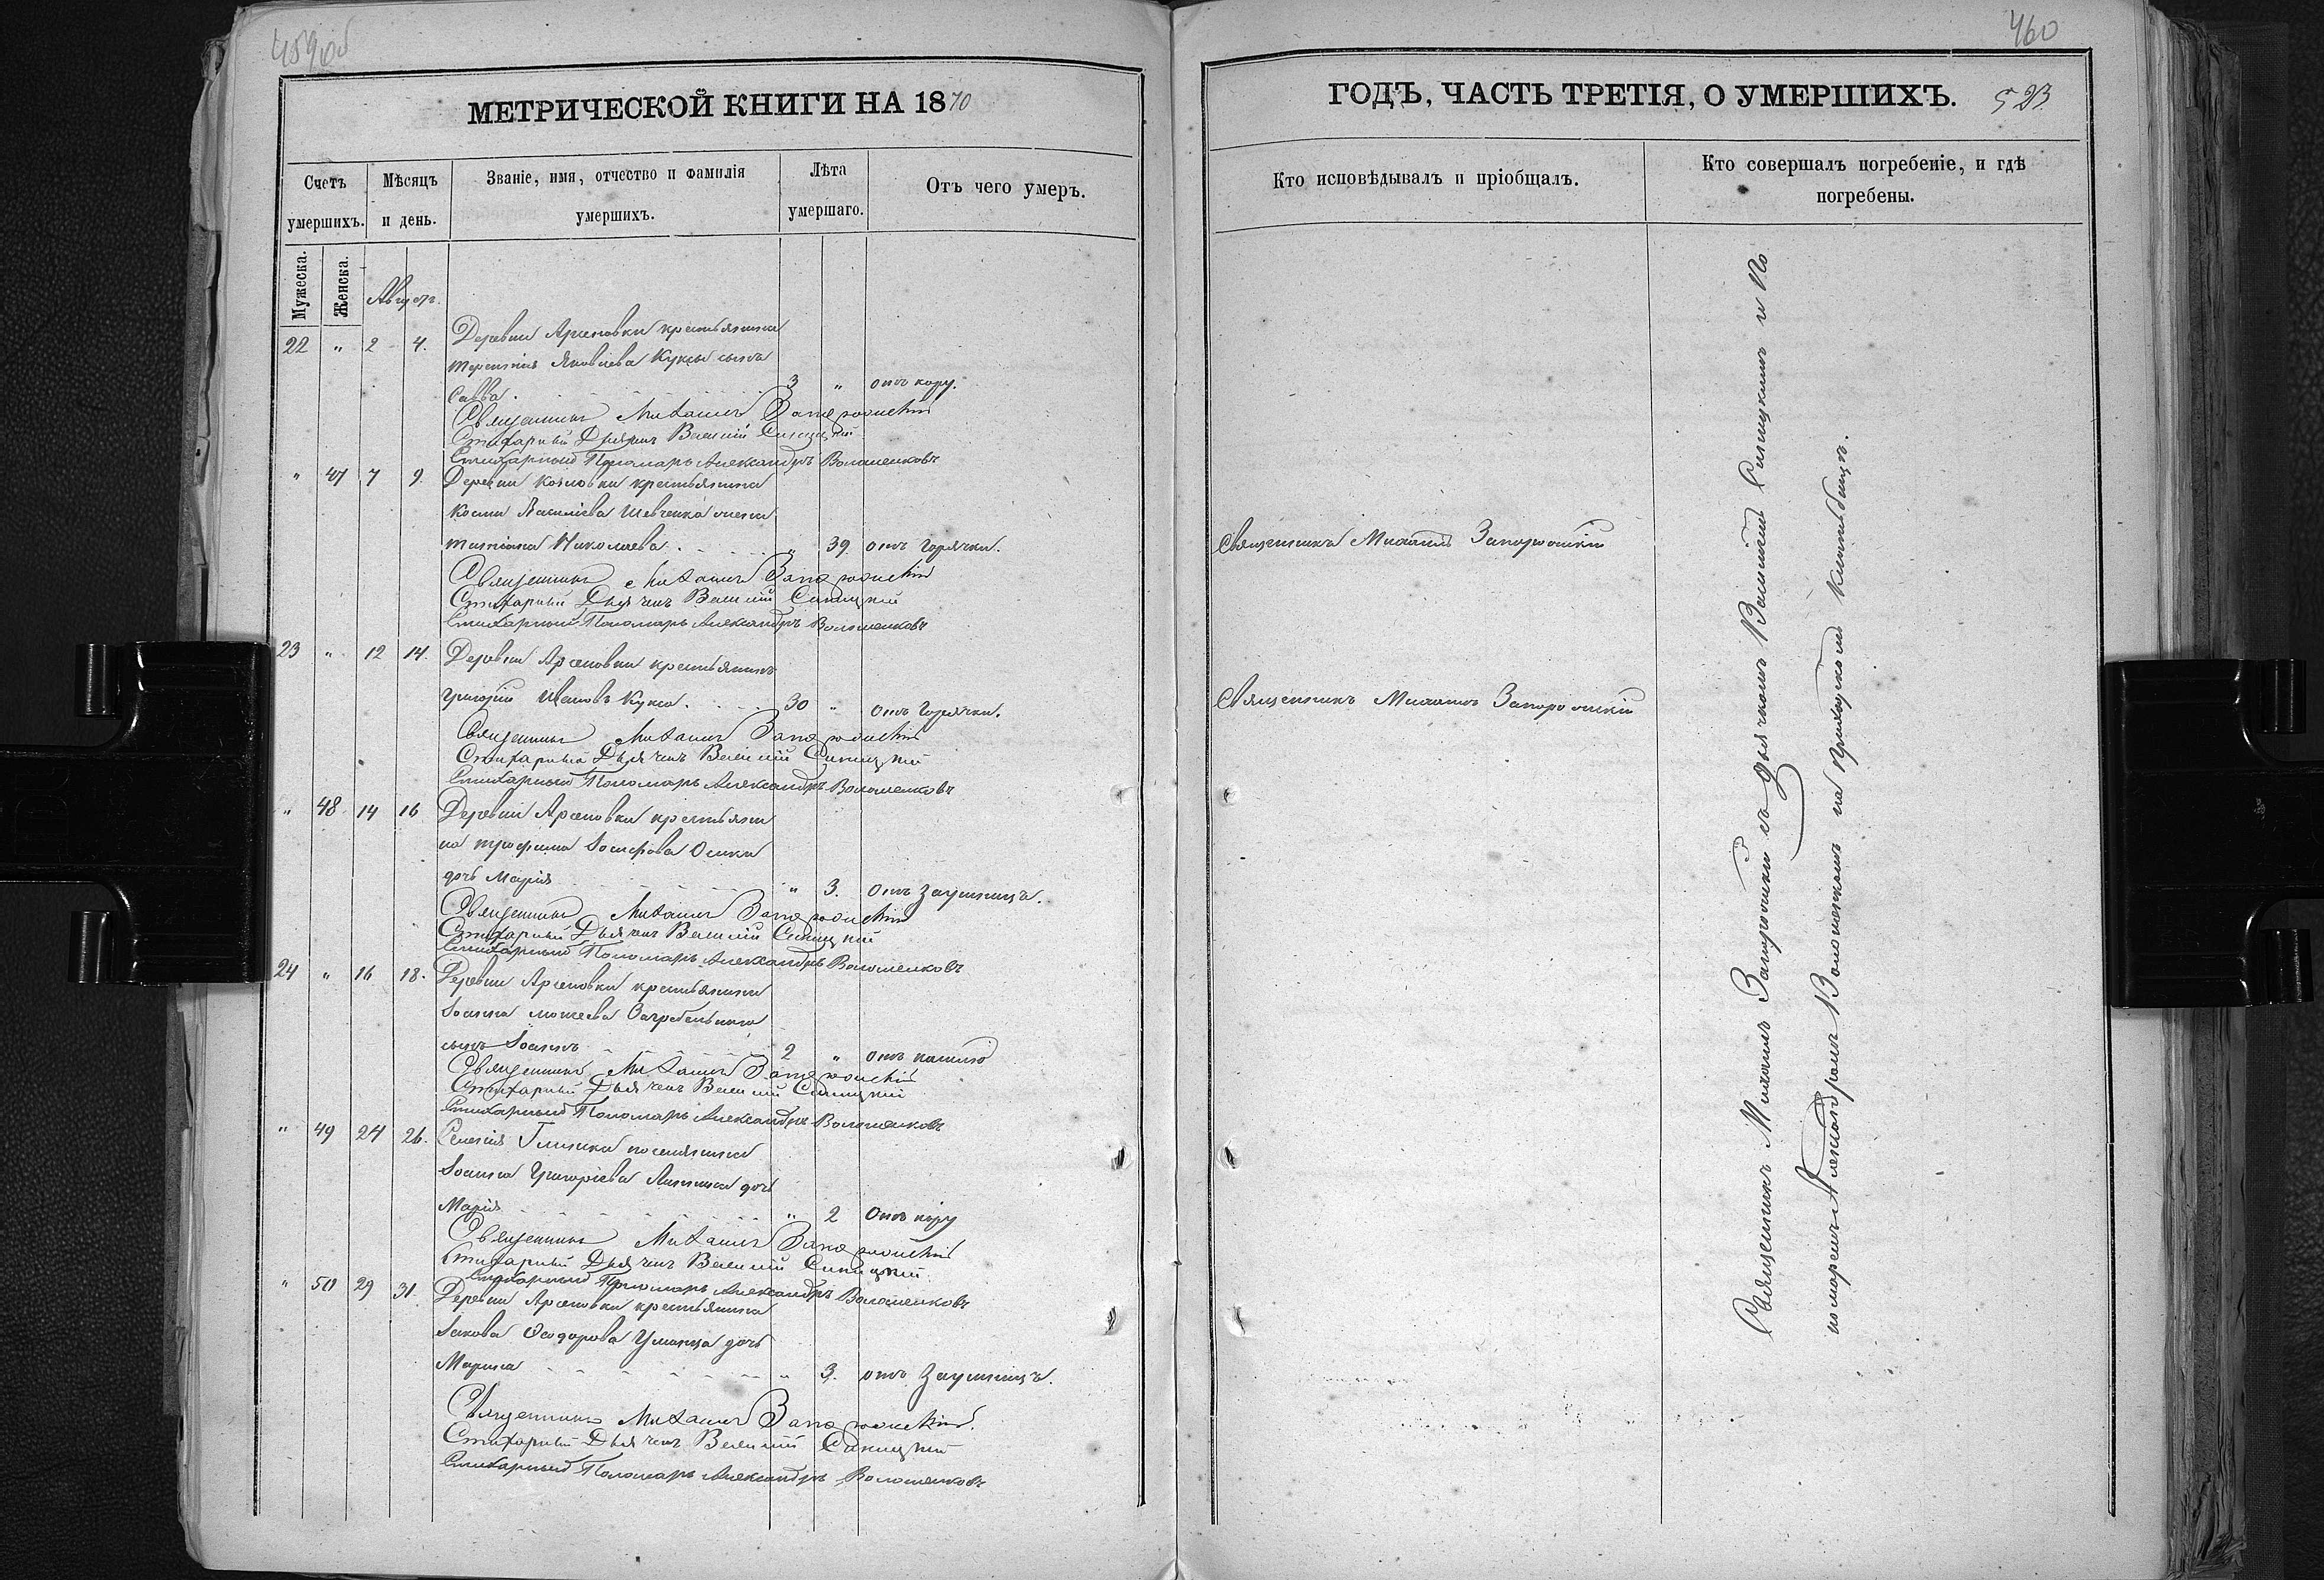 459об
МЕТРИЧЕСКОЙ КНИГИ НА 1870
Счетъ умершихъ.
Мѣсяцъ и день.
Званіе, имя, отчество и фамилія умершихъ.
Лѣта умершаго.
Отъ чего умеръ.
Мужеска.
Женска.
Августъ.
22 „ 2 4. Деревни Арсеновки крестьянина
Терентія Яковлева Куксы сынъ
Савва. 3 „ отъ кору.
Священникъ Михаилъ Запорожскій
Стихарный Дьячекъ Василій Синицкій
Стихарный Пономарь Александръ Волошенковъ
„ 47 7 9. Деревни Козловки крестьянина
Космы Василіева Шевченка жена
Татіана Николаева. „ 39 отъ горячки.
Священникъ Михаилъ Запорожскій
Стихарный Дьячекъ Василій Синицкій
Стихарный Пономарь Александръ Волошенковъ
23 „ 12 14. Деревни Арсеновки крестьянинъ
Григорій Ивановъ Кукса. 30 „ отъ горячки.
Священникъ Михаилъ Запорожскій
Стихарный Дьячекъ Василій Синицкій
Стихарный Пономарь Александръ Волошенковъ
„ 48 14 16 Деревни Арсеновки крестьяни
на Трофима Іосифова
дочь Марія „ 3. отъ заушницъ.
Священникъ Михаилъ Запорожскій
Стихарный Дьячекъ Василій Синицкій
Стихарный Пономарь Александръ Волошенковъ
24 „ 16 18. Деревни Арсеновки крестьянина
Іоанна Моисеева Загребельнаго
сынъ Іоаннъ 2 „ отъ кашлю
Священникъ Михаилъ Запорожскій
Стихарный Дьячекъ Василій Синицкій
Стихарный Пономарь Александръ Волошенковъ
„ 49 24 26. Селенія Глинска поселянина
Іоанна Григоріева дочь
Марія „ 2 отъ кору
Священникъ Михаилъ Запорожскій
Стихарный Дьячекъ Василій Синицкій
Стихарный Пономарь Александръ Волошенковъ
„ 50 29 31. Деревни Арсеновки крестьянина
Іакова Ѳеодорова Уманца дочь
Марина „ 3. отъ заушницъ.
Священникъ Михаилъ Запорожскій.
Стихарный Дьячекъ Василій Синицкій
Стихарный Пономарь Александръ Волошенковъ
460
ГОДЪ, ЧАСТЬ ТРЕТІЯ, О УМЕРШИХЪ. 523
Кто исповѣдывалъ и пріобщалъ.
Кто совершалъ погребеніе, и гдѣ погребены.
Священникъ Михаилъ Запорожскій
Священникъ Михаилъ Запорожскій
Священникъ Михаилъ Запорожскій съ дьячкомъ Василіемъ Синицкимъ и По
номаремъ Александромъ Волошенковымъ на приходскомъ кладбищѣ.